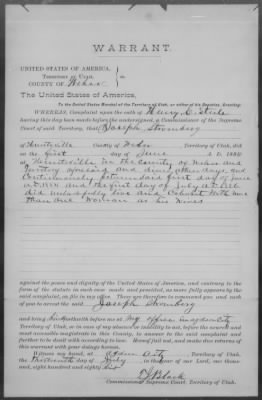 WARRANT.
UNITED STATES OF AMERICA,
TERRITORY OF UTAH,
COUNTY OF Weber
ss
The United States of America,
To the United States Marshal of the Territory of Utah, or either of his Deputies, Greeting:
WHEREAS, Complaint upon the oath of Henry C.
having this day been made before the undersigned, a Commissioner of the Supreme
Court of said Territory, that Joseph
of Huntsville
County of Weber Territory of Utah, did
on the first day of June A. D. 1884
at Huntsville in the County of Weber and
Territory aforesaid and divers other days and
continuously between said first day of June
A.D. 1884 and the first day of July A.D. 1886
did unlawfully live and Cohabit with more
than one Woman as his Wives
against the peace and dignity of the United States of America, and contrary to the
form of the statute in such cases made and provided, as more fully appears by the
said complaint, on file in my office. These are therefore to command you and each
of you to arrest the said Joseph
and bring forthwith before me at my office in Ogden City
Territory of Utah, or in case of my absence or inability to act, before the nearest and
most accessible magistrate in this County, to answer said complaint and further
to be dealt with according to law. Herein fail not, and make due returns of
this warrant with your doings hereon.
Witness my hand, at Ogden City, Territory of Utah,
the day of July in the year of our Lord, one thou-
sand, eight hundred and eighty six
Black
Commissioner Supreme Court, Territory of Utah.